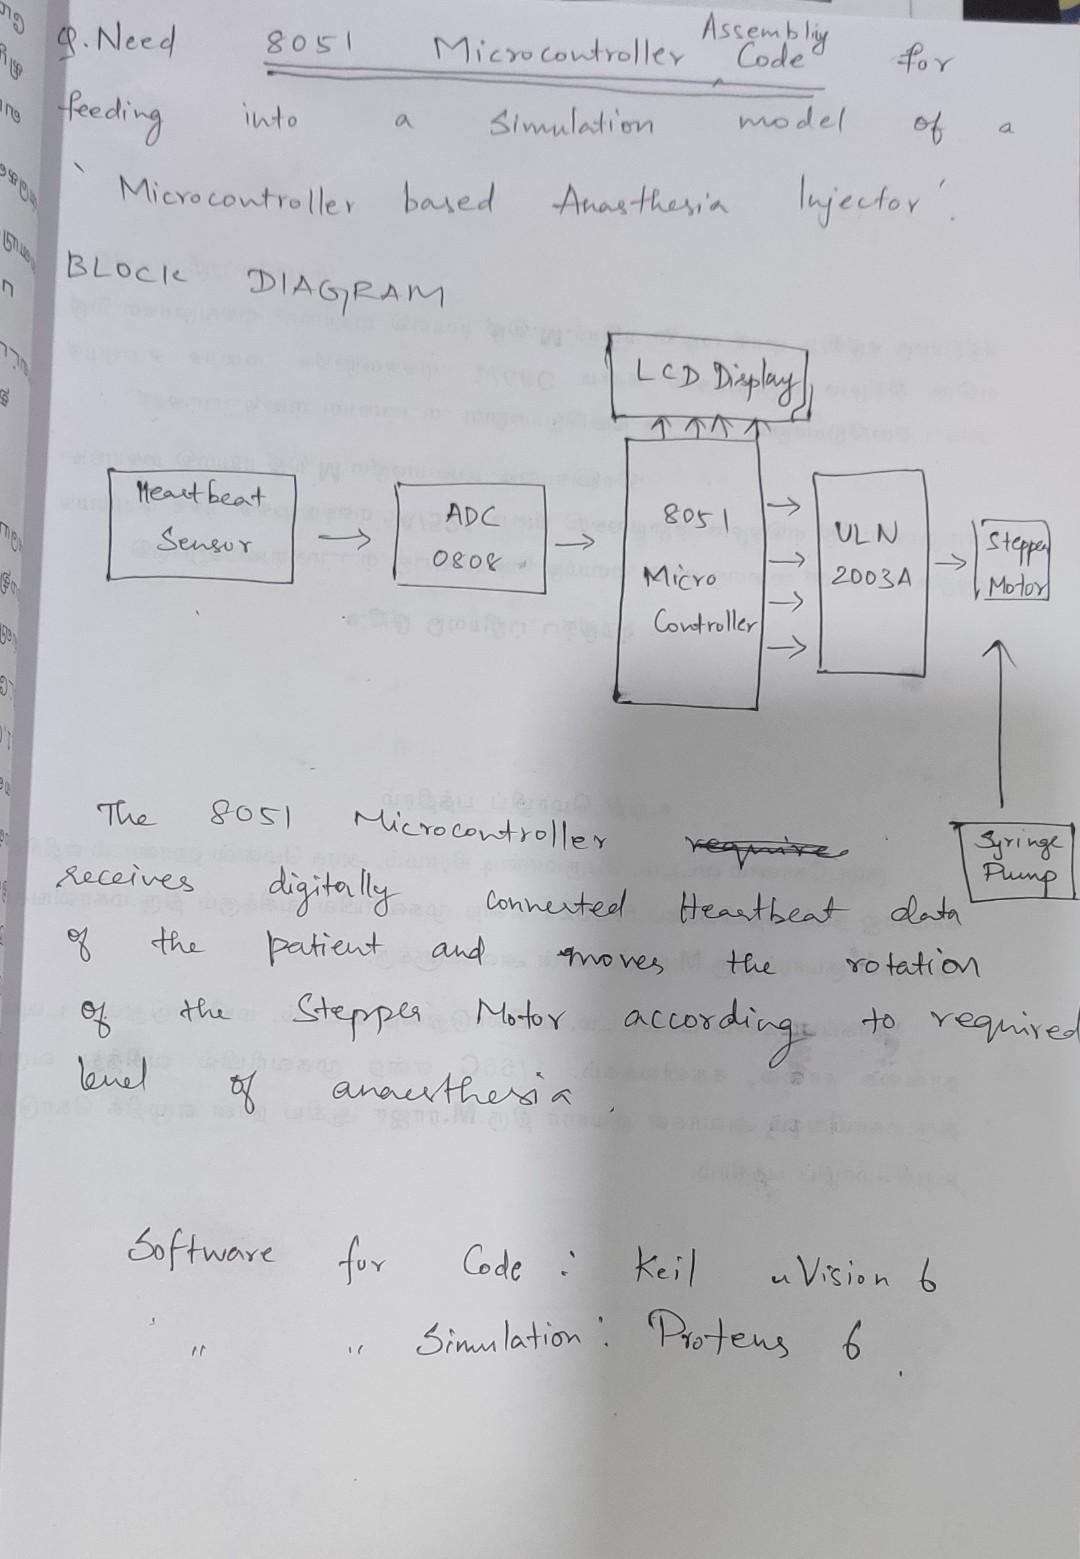 Q. Need 8051 Microcontroller Assembly Code for
feeding into a Simulation model of a
'Microcontroller based Anasthesia Injector'.
BLOCK DIAGRAM
LCD Display
Heartbeat
Sensor
ADC
0808
8051
Micro
Controller
ULN
2003A
Stepper
Motor
Syringe
Pump
The 8051 Microcontroller require
receives digitally converted Heartbeat data
of the patient and moves the rotation
of the Stepper Motor according to required
level of anaesthesia.
Software for Code : Keil uVision 6
" " Simulation : Proteus 6.